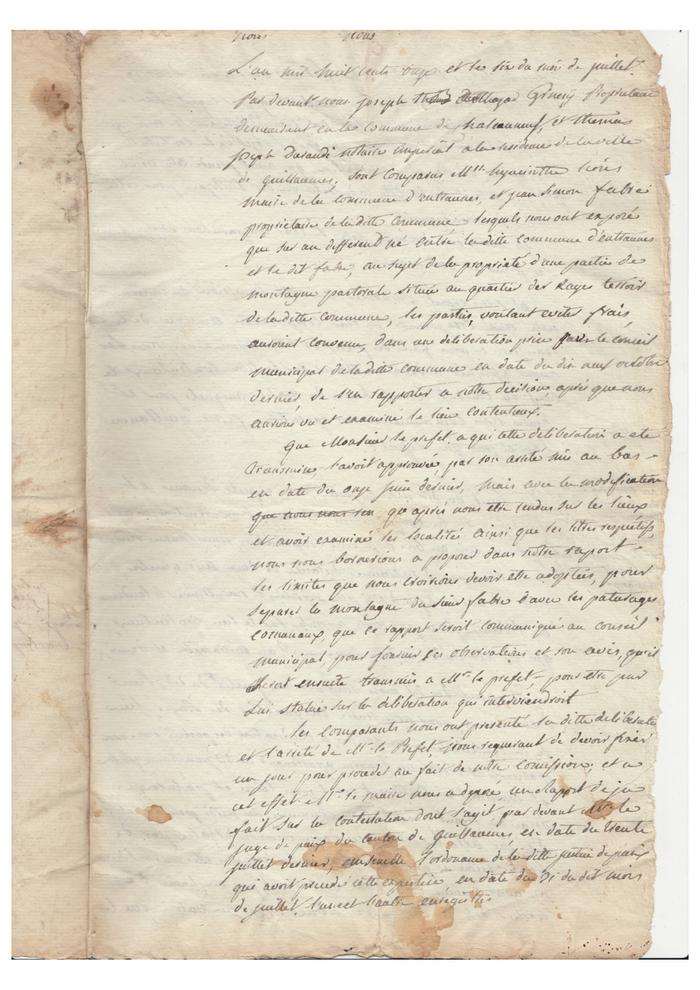 L'an mil huit cents onze et le six du mois de juillet
Par devant nous joseph Proprietaire
demeurant en la commune de chateauneuf, et thomas
joseph Durandi notaire imperial a la residence de la ville
de guillaumes, sont comparus Mrs hyacinthe
maire de la commune d'entraunes, et jean simon fabre
proprietaire de la ditte commune lesquels nous ont exposé
que sur un different né entre la ditte commune d'entraunes
et le dit fabre, au sujet de la propriete d'une partie de
montagne pastorale située au quartier des terroir
de la ditte commune, les parties, voulant eviter frais
auroient convenu, dans une deliberation prise par le conseil
municipal de la ditte commune en date du dix neuf octobre
dernier de s'en rapporter a notre decision, après que nous
aurions vu et examiné le lieu contentieux.
que Monsieur le prefet a qui cette deliberation a eté
transmise, l'avoit approuvée, par son arreté mis au bas
en date du onze juin dernier, mais avec la modification
que nous nous qu'après nous etre rendus sur les lieux
et avoir examiné les localités ainsi que les titres respectifs,
nous nous bornerions a proposer dans notre raport
les limites que nous croirions devoir etre adoptées, pour
separer la montagne du sieur fabre d'avec les paturages
comunaux, que ce rapport seroit communiqué au conseil
municipal, pour fournir ses observations et son avis, qu'il
seroit ensuite transmis a Mr le prefet pour etre par
lui statué sur la deliberation qui interviendroit
les comparants nous ont presenté la ditte deliberation
et l'arreté de Mr le Prefet, nous requerant de devoir fixer
un jour pour proceder au fait de notre comission; et a
cet effet Mr le maire nous a deposé un Rapport de ja
fait sur la contestation dont s'agit par devant Mr le
juge de paix du canton de guillaumes en date du trente
juillet dernier, ensemble l'ordonance de la ditte justice de paix
qui avoit precedé cette expertise en date du du dit mois
de juillet l'une et l'autre enregistrés